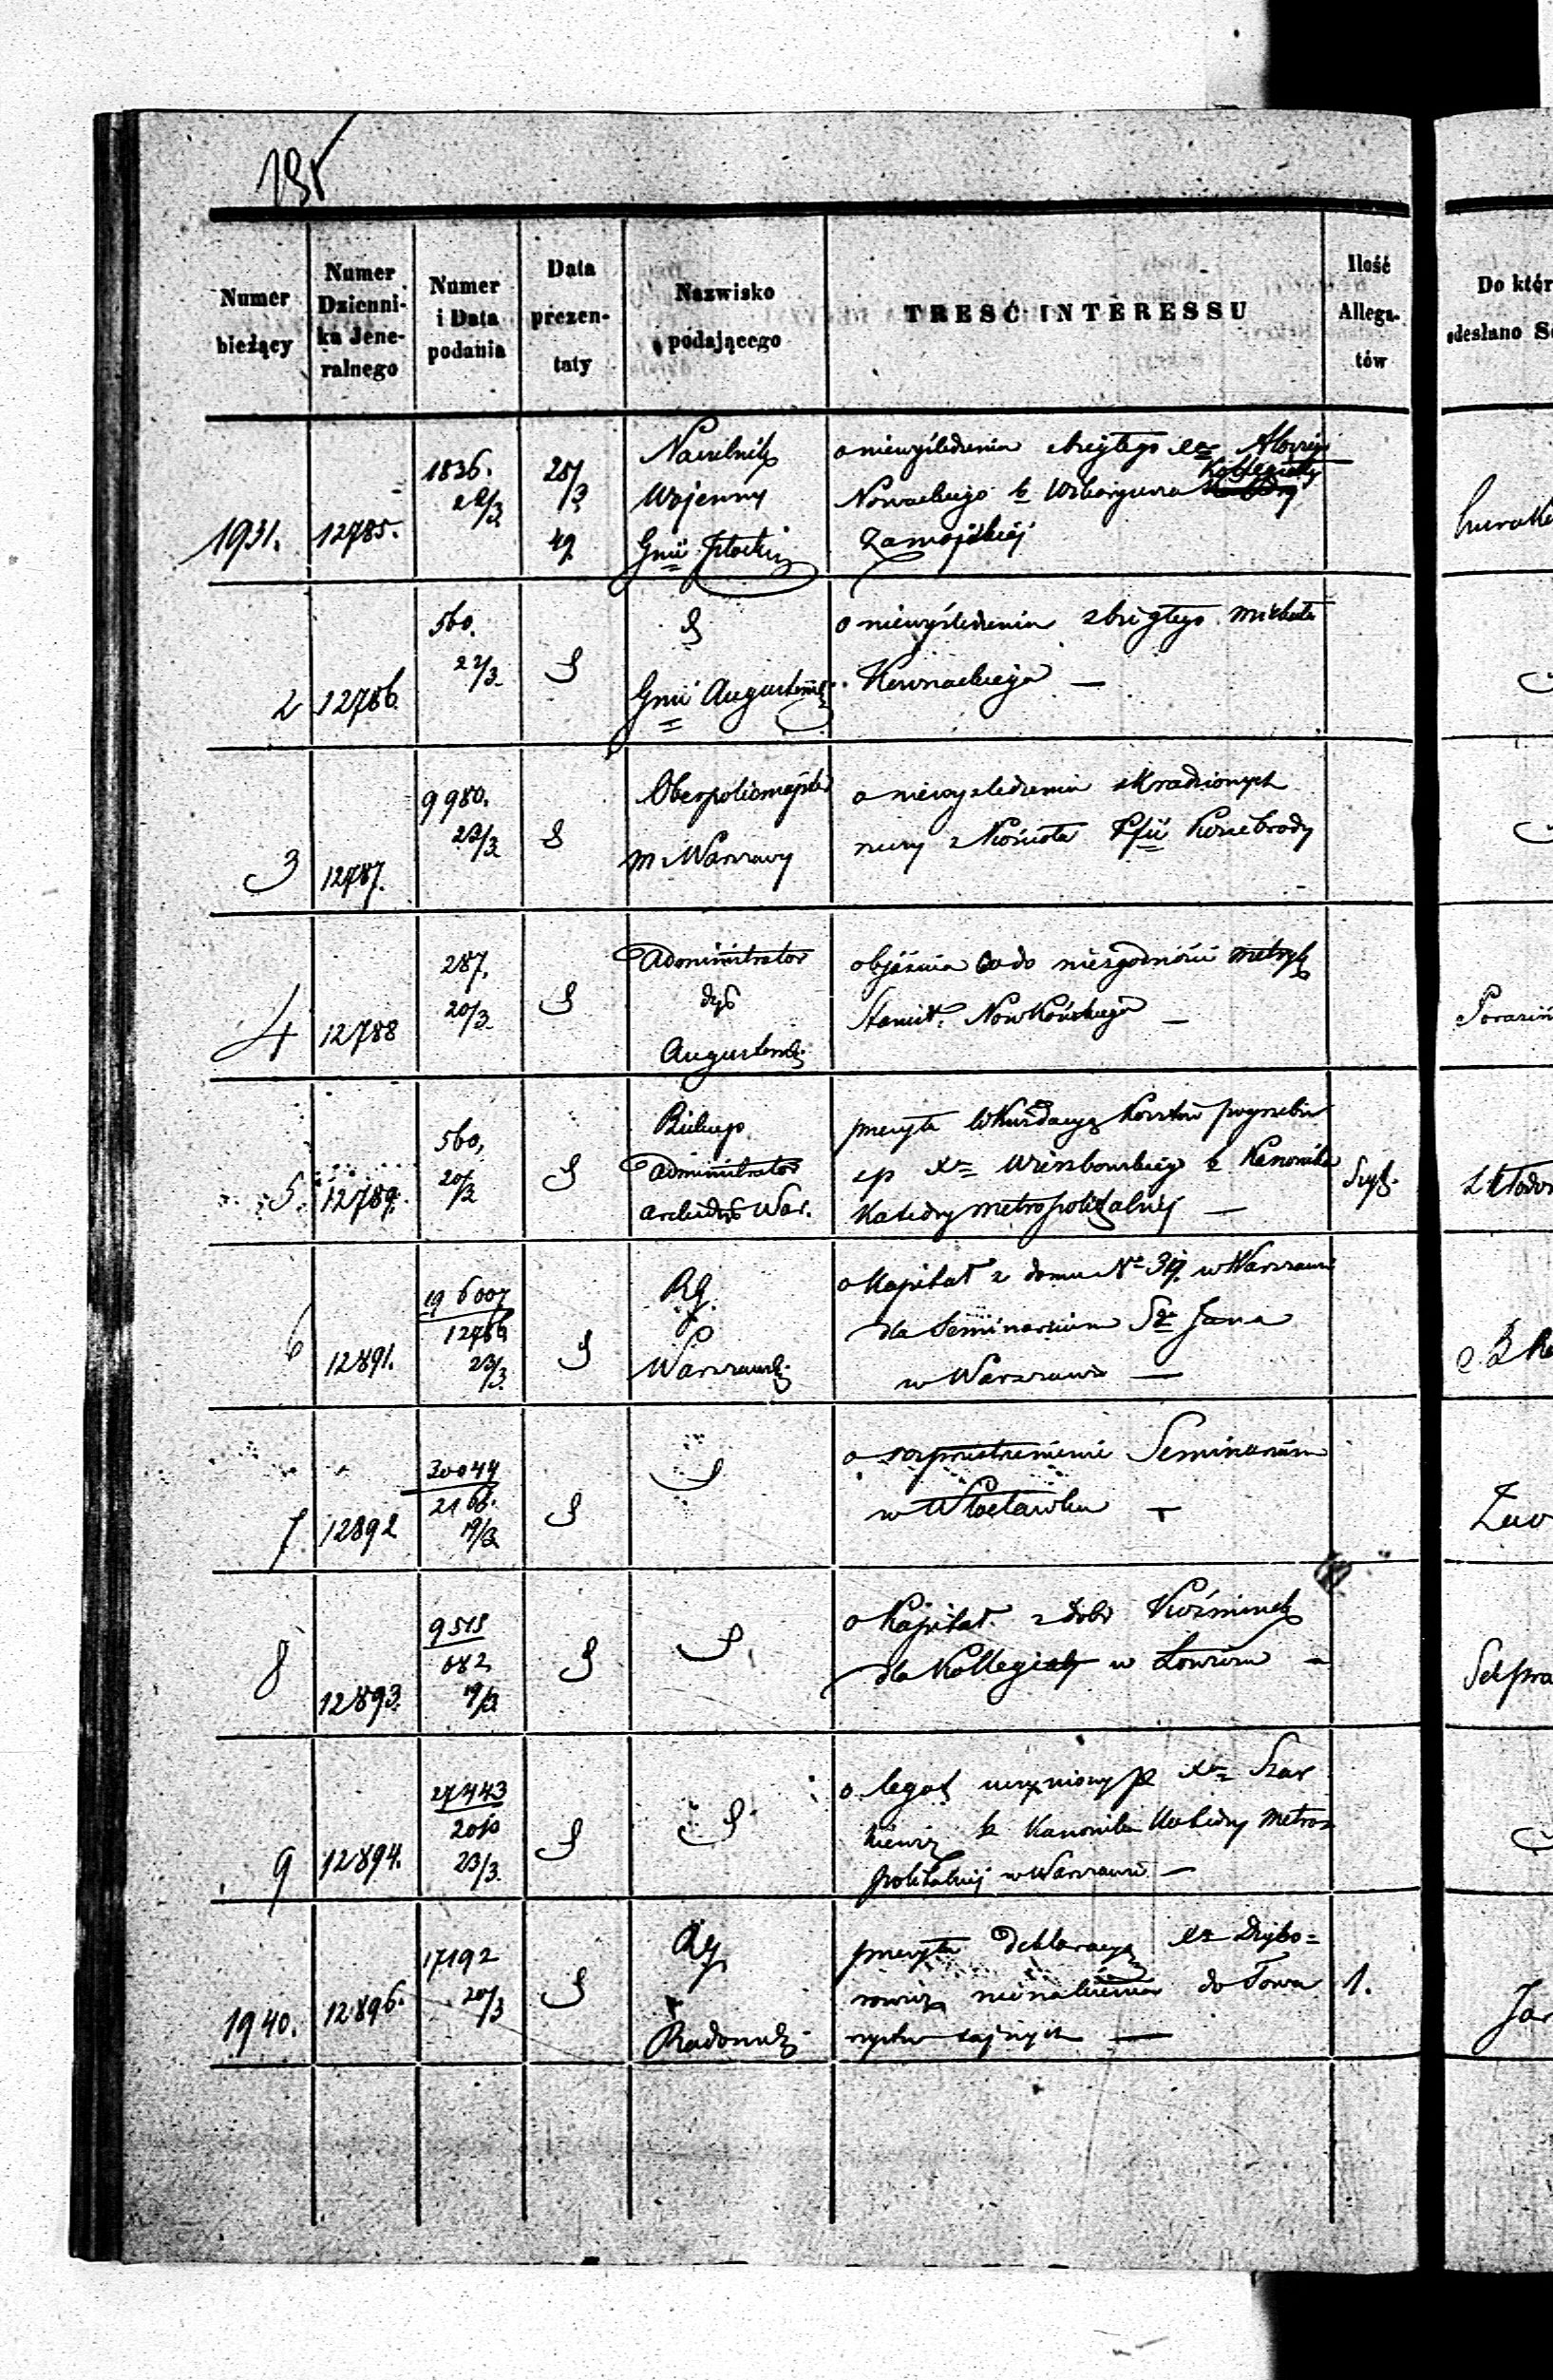 195
Numer bieżący
Numer Dzienni- ka Jene- ralnego
Numer i Data podania
Data prezen- taty
Nazwisko podającego
TREŚĆ INTERESSU
Ilość Allega- tów
Do któr
odesłano Se
1931.
12785.
1836.
22/3
28/3
49.
Naczelnik
Wojenny
Gnii Płocki
o niewyśledzeniu zbiegłego Xa
Nowackiego
Kollegiaty
Zamojskiej
2
12786
560.
22/3
Gnii Augustowsk.
o niewyśledzeniu zbiegłego Michała
3
12787.
9980.
22/3
Oberpolicmajster
m. Warszawy
o niewyśledzeniu skradzionych
rzeczy z Kościoła Pfii Krzebrody
4
12788
287.
20/3
Administrator
dyś
Augustowsk.
objaśnia co do niezgodności metryk
Stanisł.
5
12789.
560,
20/3
Biskup
Administrator
archidyś War.
przesyła likwidacyą kosztów pogrzebu
sp Xa Wierzbowskiego b Kanonika
Katedry metropolitalnej —
Szyt.
6
12891.
19 6007
12766
23/3
RG.
Warszawsk.
o Kapitał z domu No 39. w Warszawie
dla Seminarium Sgo Jana
w Warszawie —
7
12892
30044
2166.
19/3
o rozprzestrzenienie Seminarium
w Włocławku —
8
12893.
9515
682
19/3
o Kapitał z dóbr Koźminek
dla Kollegiaty w Łowiczu —
Sekpra
9
12894.
27443
2010
23/3
o legat uczyniony p Xa Szar
kiewicz b Kanonika Katedry Metro=
politalnej w Warszawie —
1940.
12896.
17192
20/3
RG
Radomsk.
przesyła Deklaracyą Xa
nienależenia do Towa
rzystw tajnych —
1.